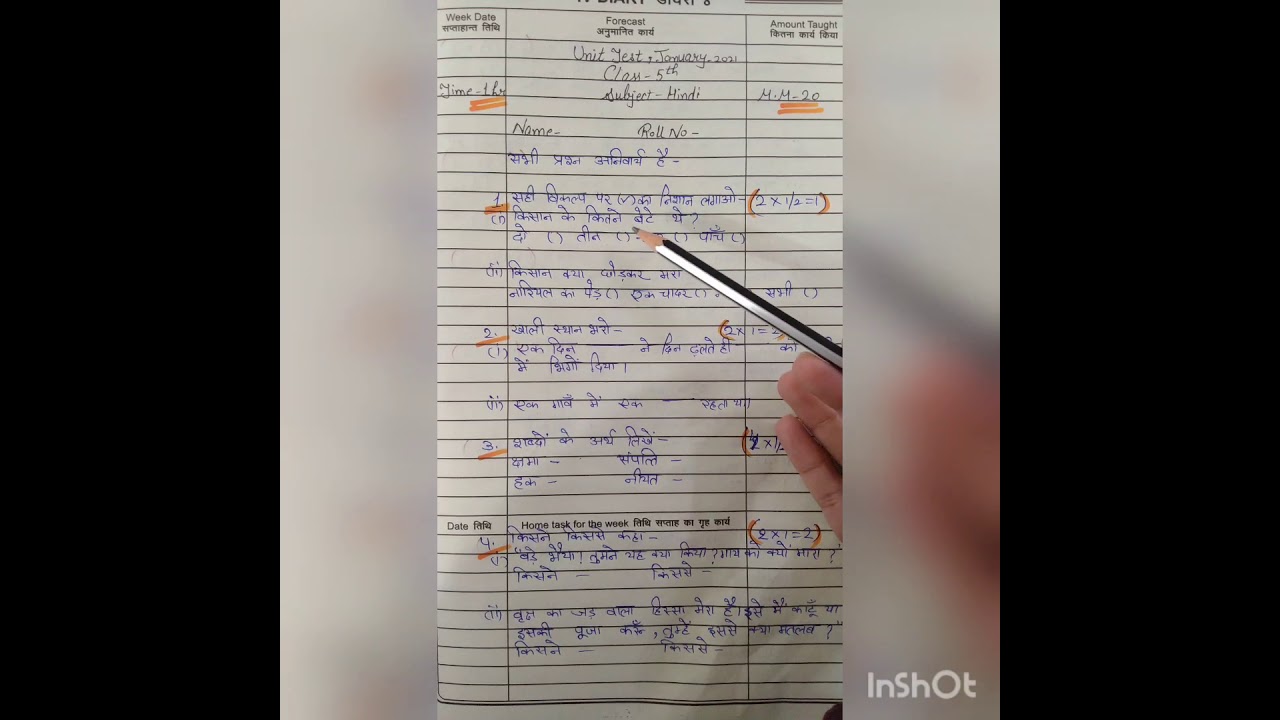 Week Date
सप्ताहान्त तिथि
Forecast
अनुमानित कार्य
Amount Taught
कितना कार्य किया
Unit Test, January-2021
Class-5th
Time-1hr
Subject-Hindi
M.M-20
Name- Roll No-
सभी प्रश्न अनिवार्य है-
1. सही विकल्प पर (✓) का निशान लगाओ- (2 x 1/2=1)
(i) किसान के कितने बेटे थे?
दो () तीन () () पाँच ()
(ii) किसान क्या छोड़कर मरा
नारियल का पेड़ () एक चादर () सभी ()
2. खाली स्थान भरो- (2x1=2)
(i) एक दिन ——— ने दिन ढलते ही को
में भिगो दिया।
(ii) एक गावँ में एक —— रहता था।
3. शब्दों के अर्थ लिखें-
क्षमा - संपत्ति -
हक - नीयत -
Date तिथि
Home task for the week तिथि सप्ताह का गृह कार्य
4. किसने किससे कहा- (2x1=2)
(i) "बड़े भैया! तुमने यह क्या किया? गाय को क्यों मारा?"
किसने - किससे -
(ii) वृक्ष का जड़ वाला हिस्सा मेरा है। इसे मैं काटूँ या
इसकी पूजा करूँ, तुम्हें इससे क्या मतलब?"
किसने - किससे -
InShOt